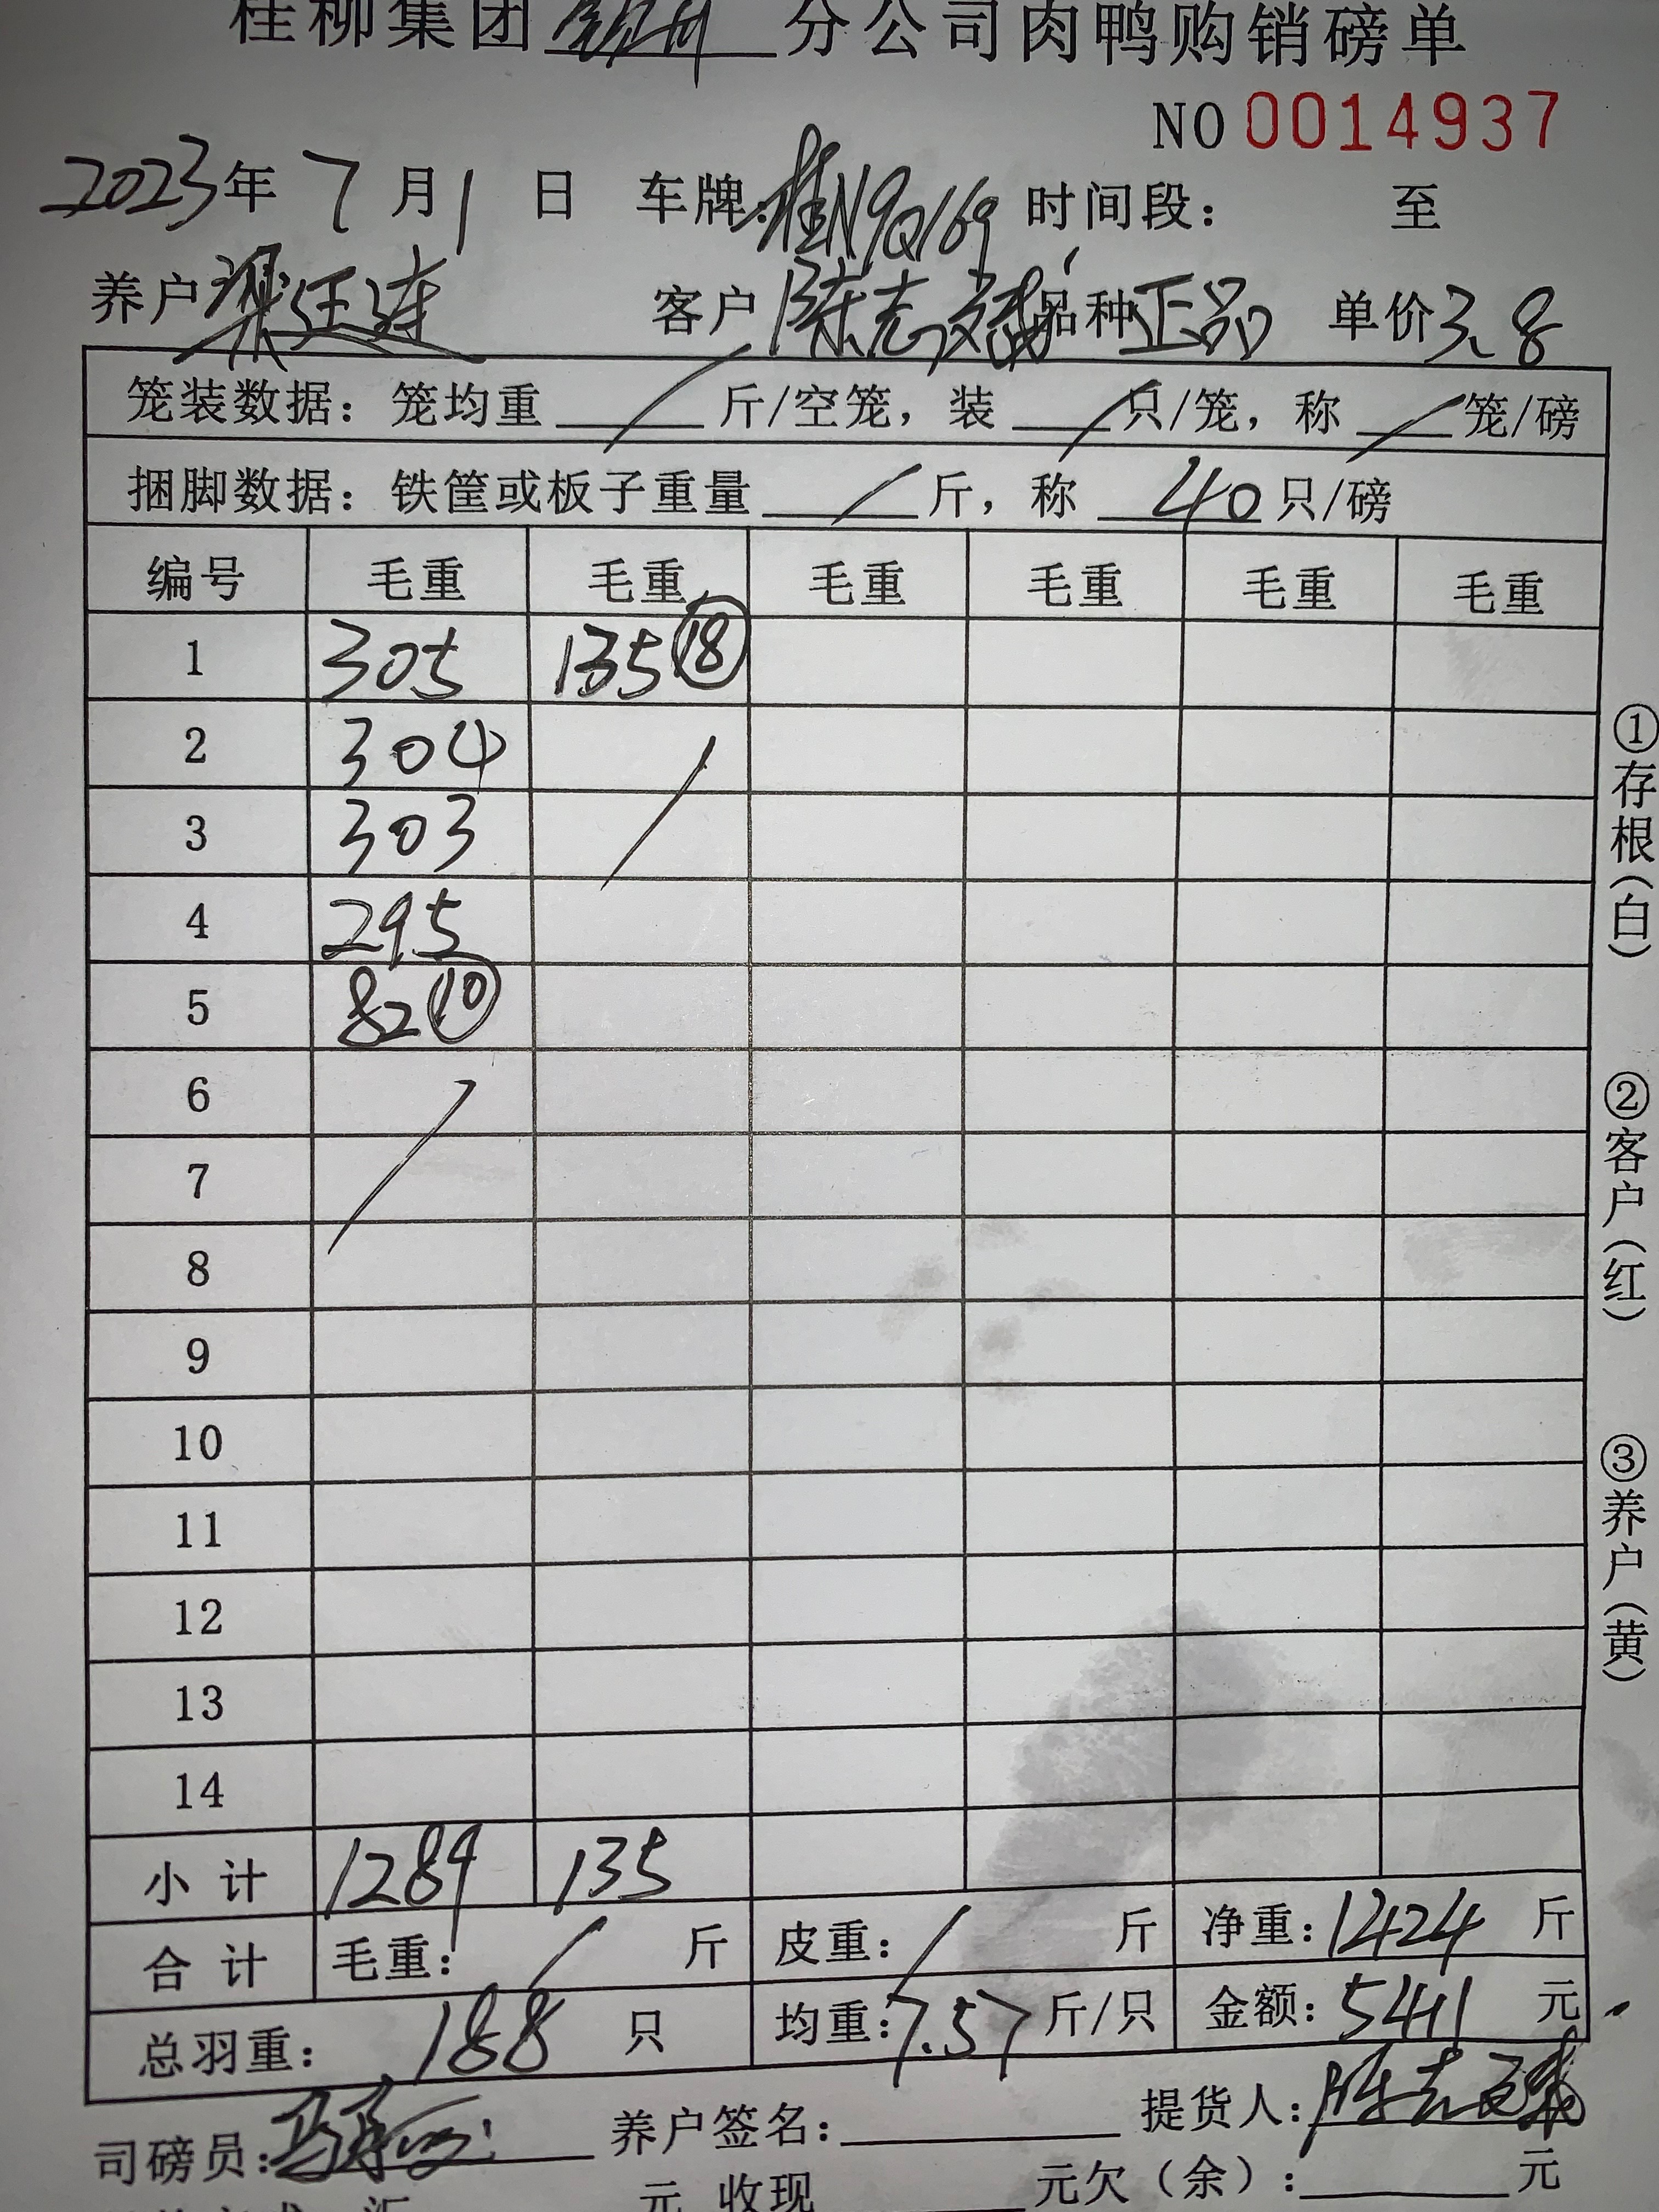 桂柳集团 钦州 分公司肉鸭购销磅单
NO 0014937
2023年 7月1日 车牌:桂N9Q169 时间段: 至
养户 客户 陈志 品种 正品 单价 3.8
笼装数据:笼均重 / 斤/空笼,装 / 只/笼,称 / 笼/磅
捆脚数据:铁筐或板子重量 / 斤,称 40 只/磅
编号 毛重 毛重 毛重 毛重 毛重 毛重
1 305 135⑱
2 304
3 303
4 295
5 82⑩
6
7
8
9
10
11
12
13
14
小计 1289 135
合计 毛重: / 斤 皮重: / 斤 净重:1424 斤
总羽重: 188 只 均重:7.57 斤/只 金额:5411 元
司磅员: 养户签名: 提货人:陈志
元 收现 元欠(余): 元
①存根(白)
②客户(红)
③养户(黄)